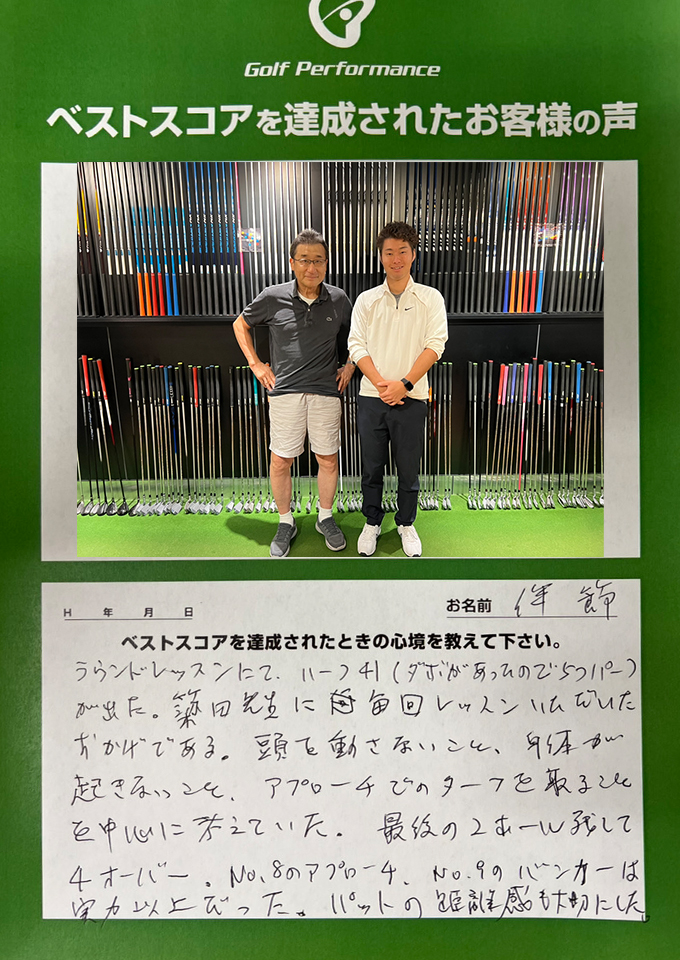 Golf Performance
ベストスコアを達成されたお客様の声
H 年 月 日
お名前
ベストスコアを達成されたときの心境を教えて下さい。
ラウンドレッスンにて、ハーフ41(ダボがあったので5つパー)
が出た。築田先生に毎回レッスンいただいた
おかげである。頭を動さないこと、身体が
起きないこと、アプローチでのターフを取ること
を中心に考えていた。最後の2ホール残して
4オーバー。No.8のアプローチ、No.9のバンカーは
実力以上だった。パットの距離感も大切にした